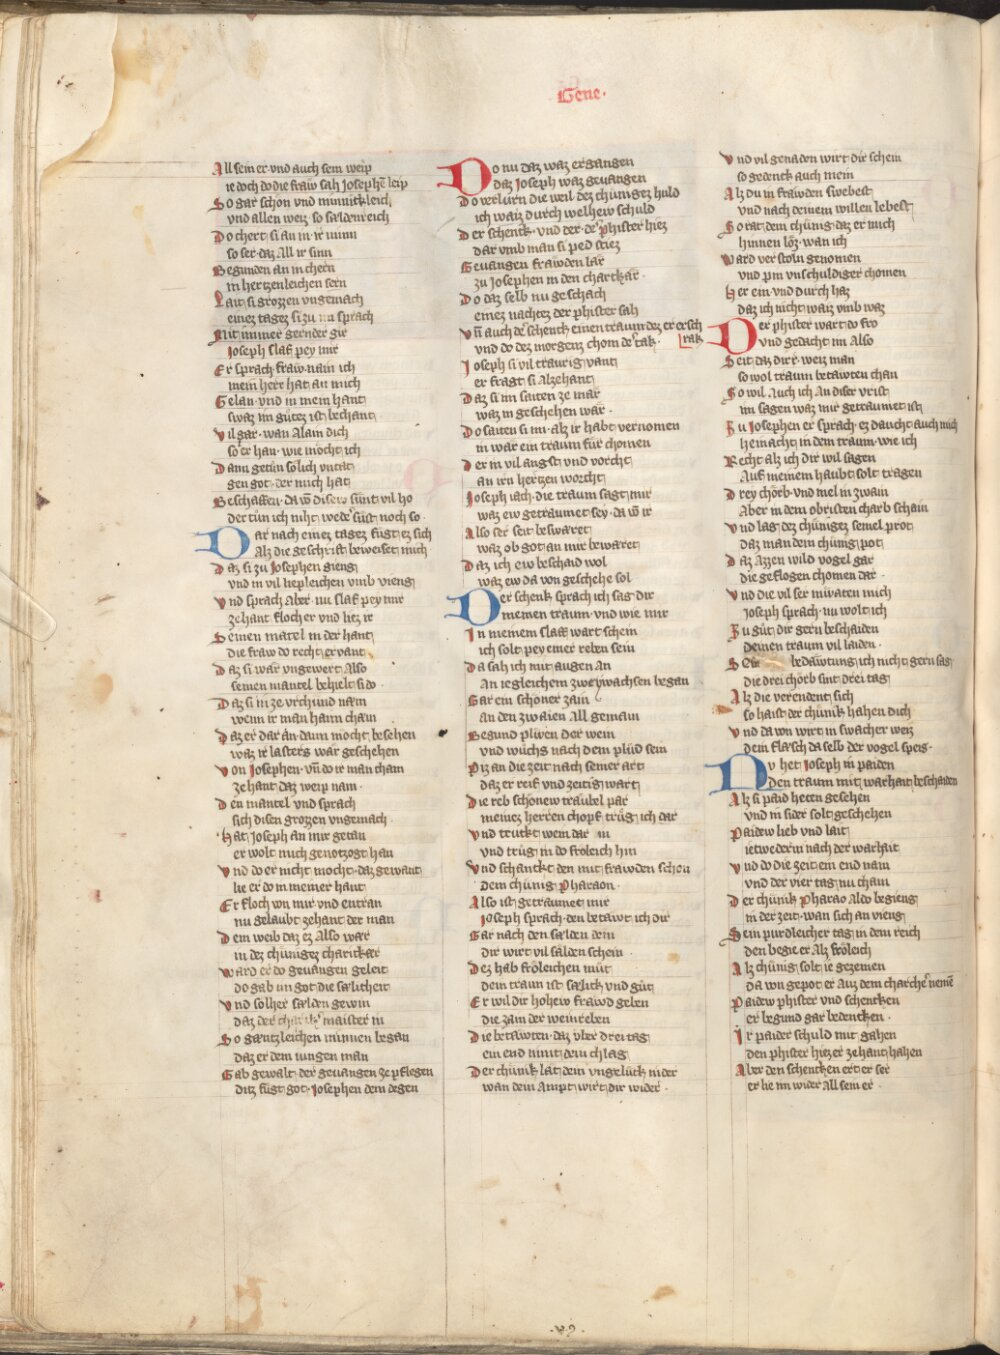 Gene·
All sein er vnd auch sein weip
ie doch do die fraw sah Josephē leip
So gar schon vnd minnichleich
vnd allen weiz so sældenreich
Do chert si an in ir minn
so ser daz All ir sinn
Begunden an in chern
in hertzenleichen sern
Lait si grozzen vngemach
einez tagez si zu im sprach
Mit immer gernder gir
Joseph slaf pey mir
Er sprach fraw nain ich
mein herr hat an mich
Gelan vnd in mein hant
swaz im gůtez ist bechant
Vil gar wan Alain dich
so er han wie mocht ich
Dann getůn solich vntat
gen got der mich hat
Beschaffen da võ diser sunt vil ho
der tůn ich niht wedˢ sust noch so
Dar nach einez tagez fůgt ez sich
Alz die geschrift beweiset mich
Daz si zu Josephen gieng
vnd in vil liepleichen vmb vieng
Vnd sprach Aber nu slaf pey mir
zehant floch er vnd liez ir
Seinen mātel in der hant
die fraw do recht ervant
Daz si war vngewert Also
seinen mantel behielt si do
Daz si in ze vrchund næm
wenn ir man haim cham
Daz er dar an daun mocht besehen
waz ir lasters wår geschehen
Von Josephen vñ do ir man cham
zehant daz weip nam
Den mantel vnd sprach
sich disen grozzen vngemach
Hat Joseph an mir getan
er wolt mich genotzogt han
Vnd do er nicht mocht daz gewant
lie er do in meiner hant
Er floch von mir vnd entran
nu gelaubt zehant der man
Dem weib daz ez Also wær
in dez chünigez charicher
Ward er do geuangen geleit
do gab im got die sælicheit
Vnd solher sælden gewin
daz der maister in
So gæntzleichen minnen began
daz er dem iungen man
Gab gewalt der geuangen ze pflegen
ditz fůgt got Josephen dem degen
Do nu daz waz ergangen
daz Joseph waz geuangen
Do verlurn die weil dez chünigez huld
ich waiz durch welhew schuld
Der schenk vnd der dˢ phister hiez
dar vmb man si ped stiez
Geuangen frawden lår
zu Josephen in den charkår
Do daz selb nu geschach
einez nachtez der phister sah
Vñ auch dˢ schenck einen traum dez er ersch
vnd do dez morgenz chom dˢ tak rak
Joseph si vil traurig vant
er fragt si Alzehant
Daz si im saiten ze mår
waz in geschehen wår
Do saiten si im alz ir habt vernomen
in wår ein traum fur chomen
Der in vil angst vnd vorcht
an irn hertzen worcht
Joseph iach die traum sagt mir
waz ew getraumet sey da võ ir
Also ser seit beswæret
waz ob got an mir bewæret
Daz ich ew beschaid wol
waz ew da von geschehe sol
Der schenk sprach ich sag dir
meinen traum vnd wie mir
In meinem slaff wart schein
ich solt pey einer reben sein
Da sah ich mit augen An
An iegleichem zwey wachsen began
Gar ein schoner zain
an den zwaien All gemain
Begund plüen der wein
vnd wůchs nach dem plüd sein
Piz an die zeit nach seiner art
daz er reif vnd zeitig wart
Die reb schonew traubel par
meinez herren chopf trůg ich dar
Vnd truckt wein dar in
vnd trůg in do froleich hin
Vnd schanckt den mit frawden schon
dem chünig Pharaon
Also ist getraumet mir
Joseph sprach den betawt ich dir
Gar nach den sælden dein
dir wirt vil sålden schein
Dez hab froleichen můt
dein traum ist sælick vnd gůt
Er wil dir hohew frawd geben
die zain der weinreben
Die betawten daz vber drei tag
ein end nimt dein chlag
Der chünk lat dein vngelück nider
wan dein Ampt wirt dir wider
Vnd vil genaden wirt dir schein
so gedenck auch mein
Alz du in frawden swebest
vnd nach deinem willen lebest
So rat dem chünig daz er mich
hinnen lòz wan ich
Ward verstoln genomen
vnd pin vnschuldiger chomen
Her ein vnd durch haz
daz ich nicht waiz vmb waz
Der phister wart do fro
vnd gedacht im Also
Seit daz dirr weiz man
so wol traum betawten chan
So wil Auch ich An diser vrist
im sagen waz mir getraumet ist
Zu Josephen er sprach ez daucht auch mich
heinacht in dem traum wie ich
Recht alz ich dir wil sagen
Auf meinem haubt solt tragen
Drey chòrb vnd mel in zwain
Aber in dem obristen charb schain
Vnd lag dez chünigez semel prot
daz man dem chünig pot
Daz Azzen wild vogel gar
die geflogen chomen dar
Vnd die vil ser müeten mich
Joseph sprach nu wolt ich
Zu gůt dir gern beschaiden
deinen traum vil laiden
Sein bedawtung ich nicht gern sag
die drei chòrb sint drei tag
Alz die verendent sich
so haist der chünik hahen dich
Vnd da von wirt in swacher weiz
dein flæsch da selb der vogel speis
Du het Joseph in paiden
Den traum mit warhait bescheiden
Alz si paid heten gesehen
vnd in sider solt geschehen
Paidew lieb vnd lait
ietwederm nach der warhait
Vnd do die zeit ein end nam
vnd der vier tag nu cham
Der chünik Pharao Aldo begieng
in der zeit wan sich an vieng
Sein pürdleicher tag in dem reich
den begie er Alz fröleich
Alz chünig solt ie gezemen
da von gepot er Auz dem charchˢ nemē
Paidew phister vnd schencken
er begund gar bedencken
Ir paider schuld mit gahen
den phister hiez er zehant hahen
Aber den schencken ert er ser
er lie im wider All sein er